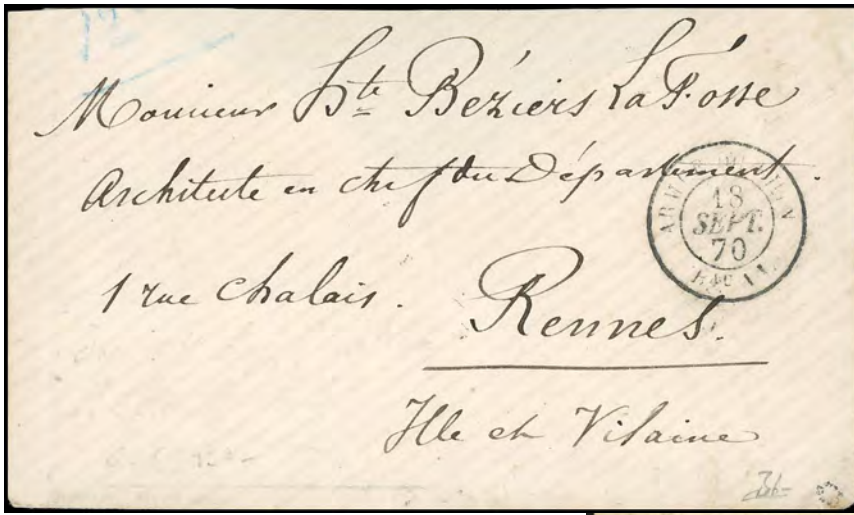 Monsieur Hte Béziers La Fosse
Architecte en chef du Département.
18
SEPT.
70
1 rue Chalais.
Rennes.
Ille et Vilaine